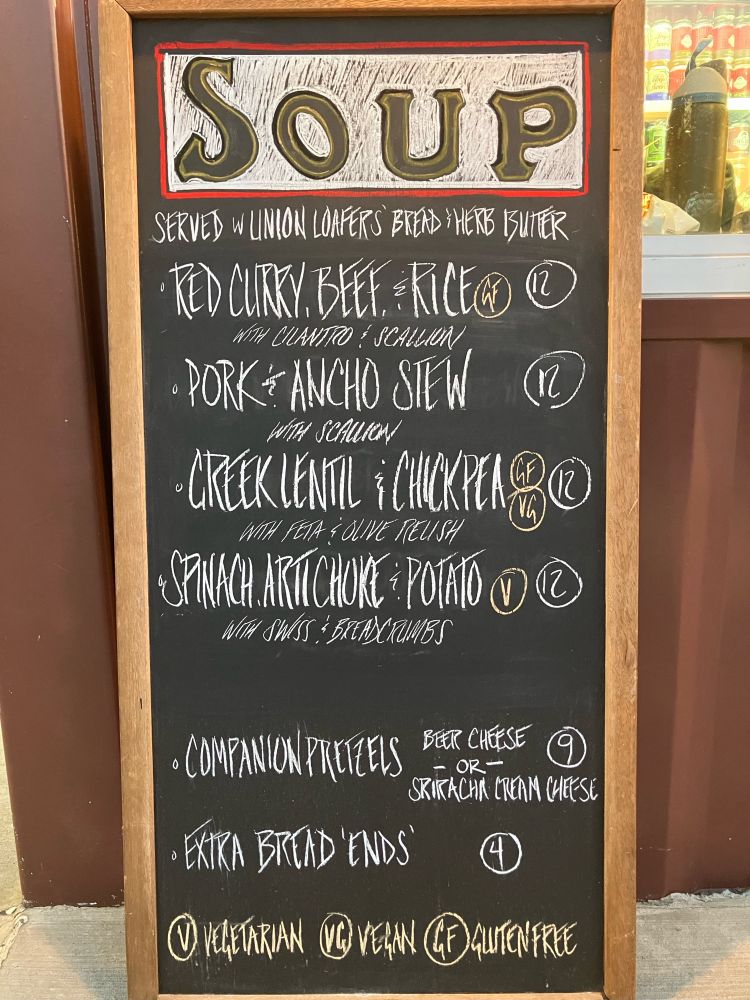 SOUP
SERVED W UNION LOAFERS' BREAD & HERB BUTTER
RED CURRY, BEEF, & RICE GF 12
WITH CILANTRO & SCALLION
PORK & ANCHO STEW 12
WITH SCALLION
GREEK LENTIL & CHICKPEA GF VG 12
WITH FETA & OLIVE RELISH
SPINACH, ARTICHOKE & POTATO V 12
WITH SWISS & BREADCRUMBS
COMPANION PRETZELS BEER CHEESE 9
- OR -
SRIRACHA CREAM CHEESE
EXTRA BREAD 'ENDS' 4
V VEGETARIAN VG VEGAN GF GLUTEN FREE